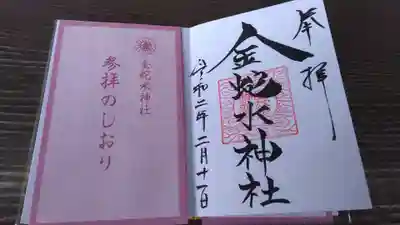 奉拝
金蛇水神社
令和二年二月十一日
金蛇水神社
参拝のしおり